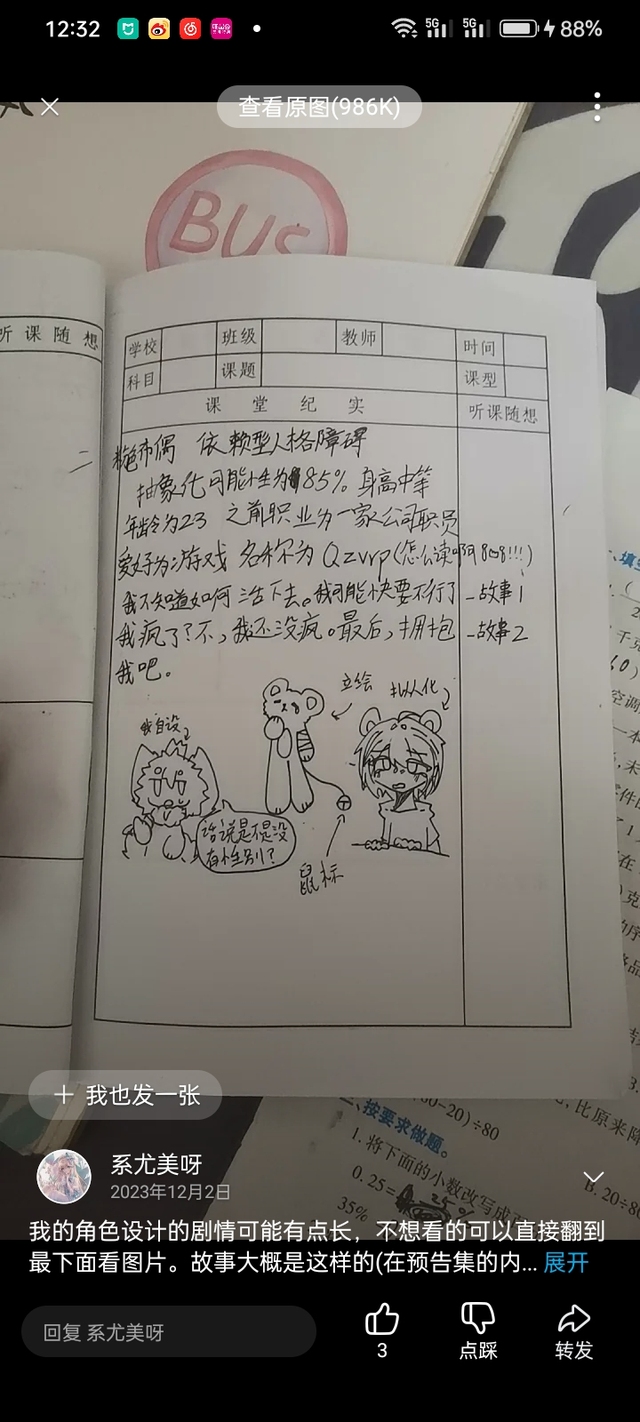 12:32
5G
5G
88%
查看原图(986K)
BUS
听课随想
学校
班级
教师
时间
科目
课题
课型
课堂纪实
听课随想
二
布偶 依赖型人格障碍
抽象化可能性为85%。身高中等
年龄为23 之前职业为一家公司职员
爱好为游戏 名称为Qzvrp(怎么读啊!!!)
我不知道如何活下去。我可能快要不行了 —故事1
我疯了?不,我还没疯。最后,拥抱 —故事2
我吧。
立绘
拟人化
我自设
话说是不是没
有性别?
鼠标
一、填空
千克
空调
一本
克
÷80
比原来降
二、按要求做题。
1. 将下面的小数改写成
0.25=
25%
B. 20÷8
35%
+ 我也发一张
系尤美呀
2023年12月2日
我的角色设计的剧情可能有点长，不想看的可以直接翻到
最下面看图片。故事大概是这样的(在预告集的内... 展开
回复 系尤美呀
3
点踩
转发